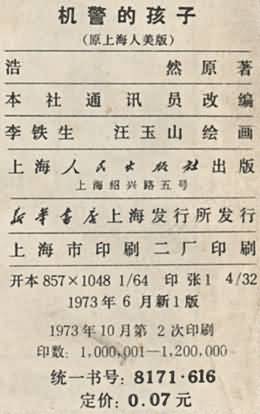 机警的孩子
(原上海人美版)
浩然原著
本社通讯员改编
李铁生 汪玉山绘画
上海人民出版社出版
上海绍兴路五号
新华书店上海发行所发行
上海市印刷二厂印刷
开本857×1048 1/64 印张1 4/32
1973年6月新1版
1973年10月第2次印刷
印数: 1,000,001—1,200,000
统一书号: 8171·616
定价: 0.07元